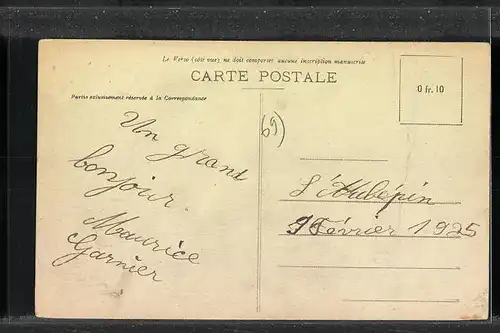 Le Verso (côté vue) ne doit comporter aucune inscription manuscrite
CARTE POSTALE
Partie exclusivement réservée à la Correspondance
0 fr. 10
Un grand
bonjour.
Maurice
Garnier
(69)
L'Aubépin
9 Février 1925